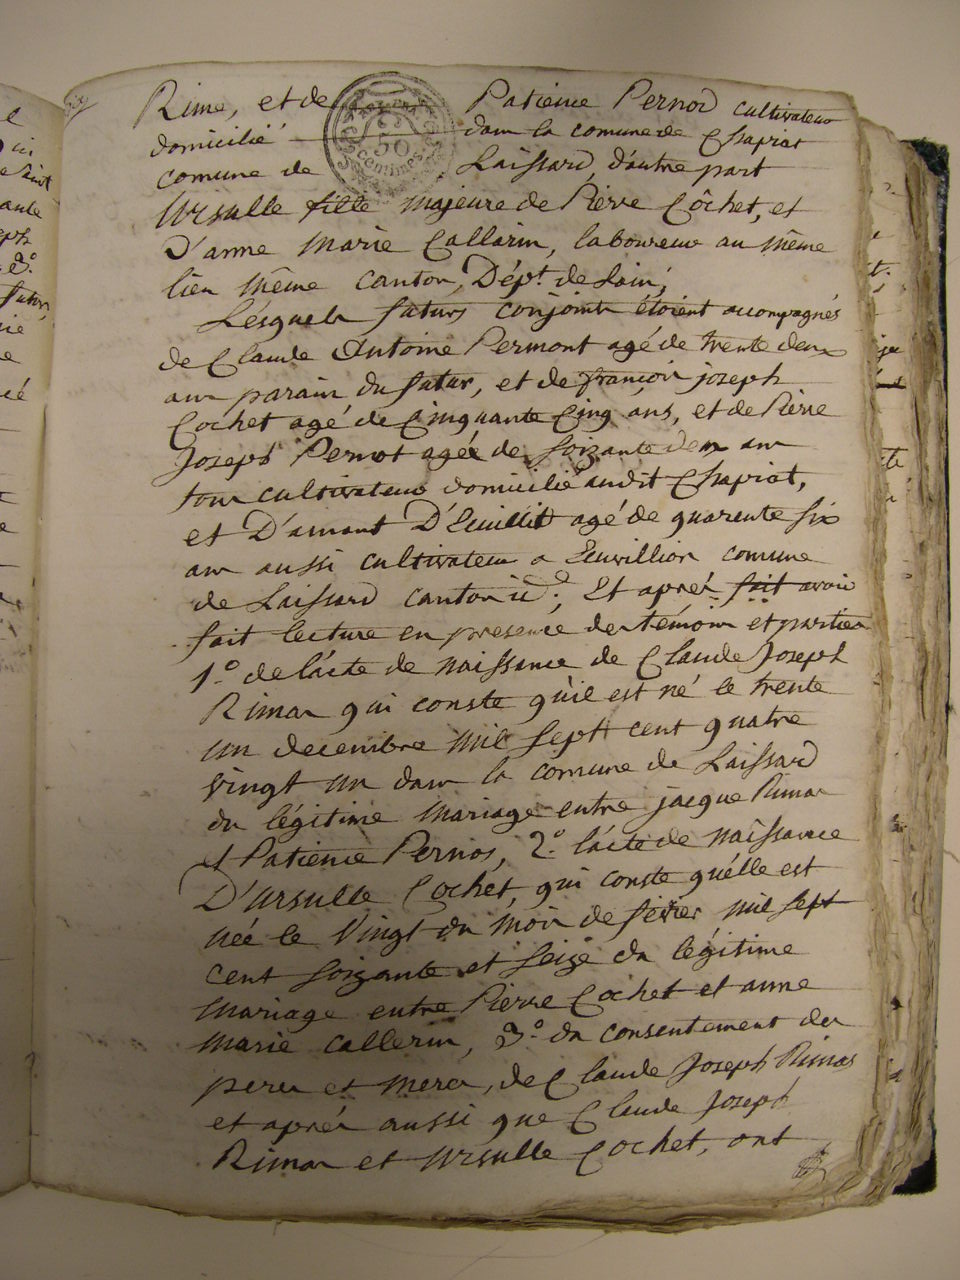 Rime, et de Patience Pernod cultivateur
domicilié dans la comune de Chapiat
comune de Laissard, d'autre part
Ursulle fille majeure de Pierre Côchet, et
D'anne Marie Callarin, laboureur au même
lieu même canton, Dépt. de Lain;
Lésquels futurs conjoints étoient accompagnés
de Claude Antoine Permont agé de trente deux
ans parain du futur, et de françois joseph
Cochet agé de Cinquante Cinq ans, et de Pierre
Joseph Pernot agée de soizante deux ans
tous cultivateurs domicilié audit Chapiat,
et D'amant agé de quarente six
ans aussi cultivateur a comune
de Laissard canton id.e; Et aprés fait avoir
fait lecture en presence des témoins et parties
1.° de lácte de naissance de Claude Joseph
Rimas qui conste qu'il est né le trente
un decembre mil sept cent quatre
vingt un dans la comune de Laissard
du légitime mariage entre jacque Rimas
et Patience Pernos, 2.° lácte de naissance
D'ursulle Cochet, qui conste quélle est
née le vingt du mois de fevrier mil sept
cent soizante et seize du légitime
mariage entre Pierre Cochet et anne
marie callerin, 3.° du consentement des
peres et meres, de Claude Joseph Rimas
et aprés aussi que Claude Joseph
Rimas et Ursulle Cochet, ont
50
centimes